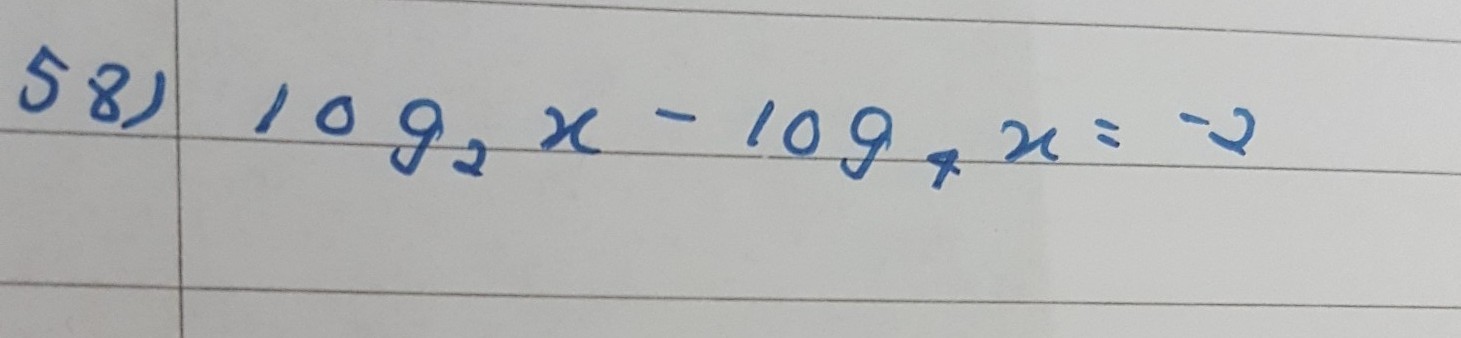 58) log₂ x - log₄ x = -2